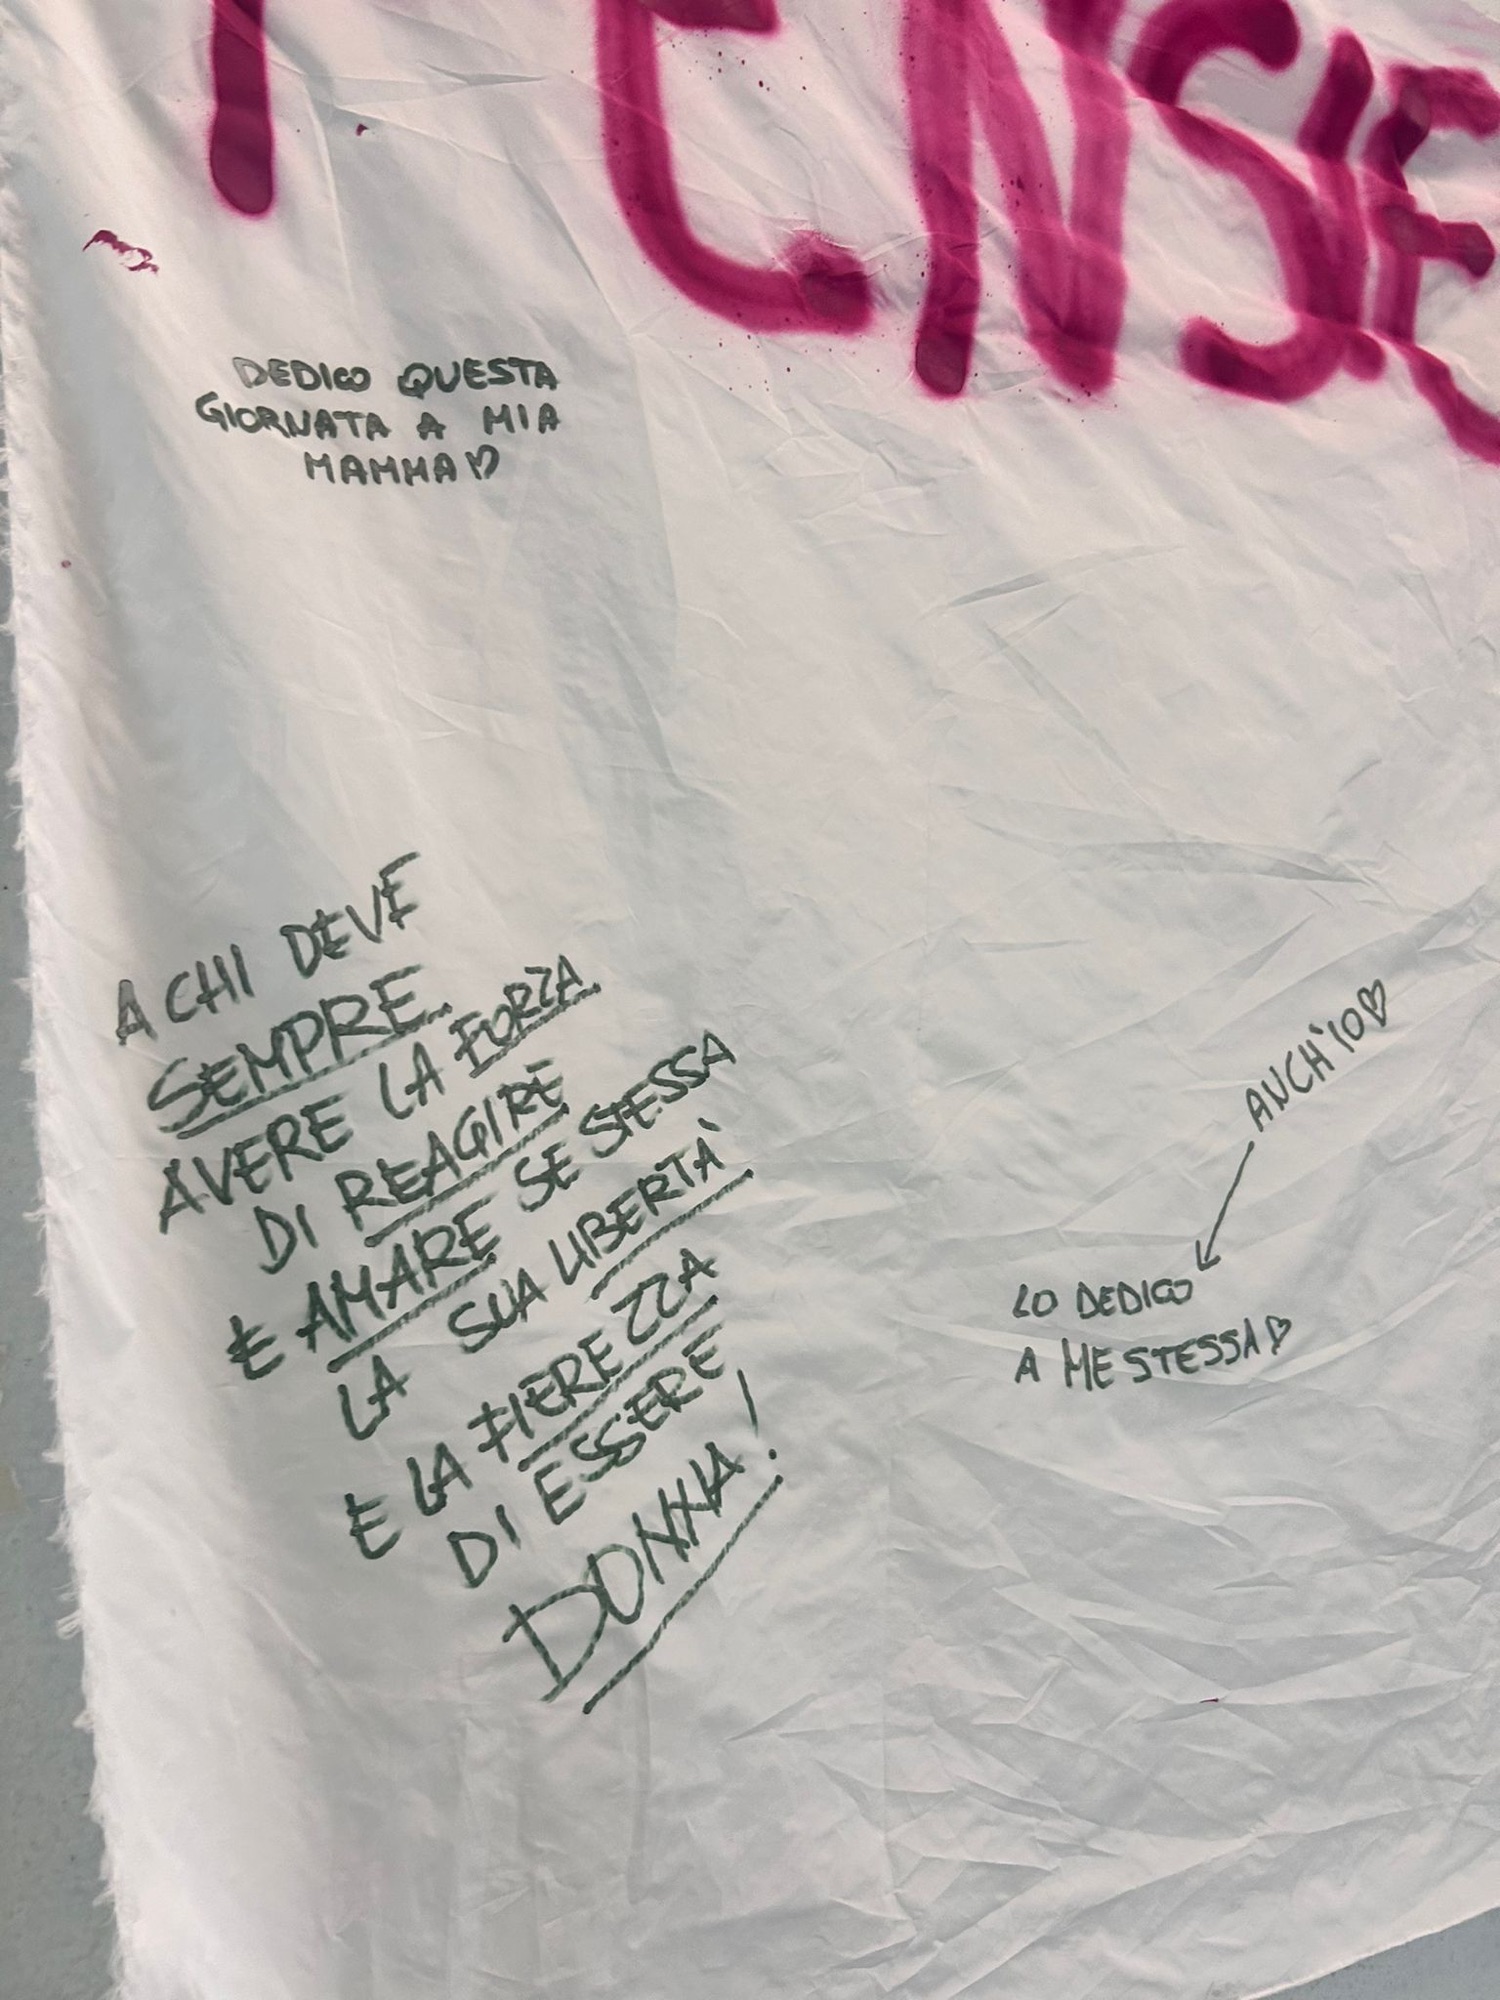 DEDICO QUESTA
GIORNATA A MIA
MAMMA♡
A CHI DEVE
SEMPRE
AVERE LA FORZA
DI REAGIRE
E AMARE SE STESSA
LA SUA LIBERTÀ
E LA FIEREZZA
DI ESSERE
DONNA!
ANCH'IO♡
LO DEDICO
A ME STESSA♡